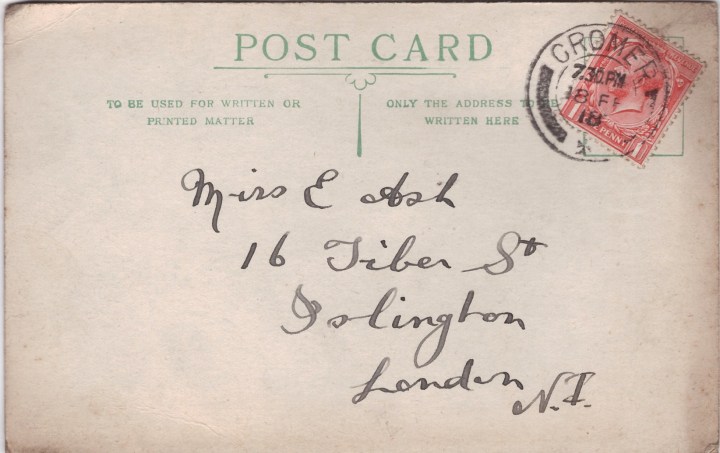 POST CARD
TO BE USED FOR WRITTEN OR
PRINTED MATTER
ONLY THE ADDRESS TO BE
WRITTEN HERE
CROMER
7.30 PM
18 FE
18
PENNY
1
1
Miss E Ash
16 Tiber St
Islington
London
N.I.